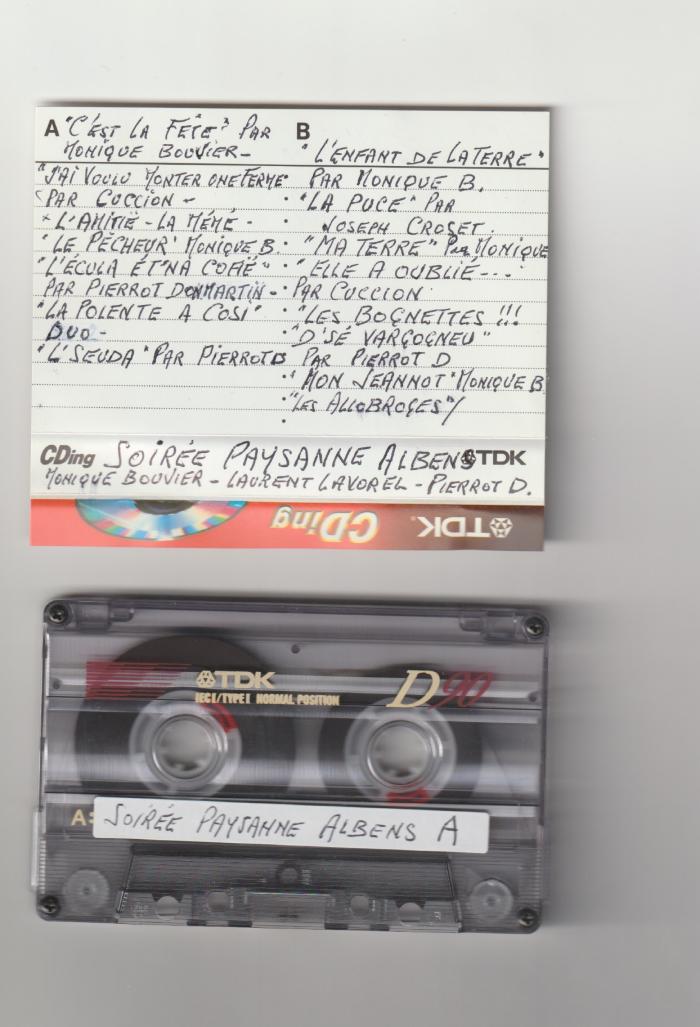 A "C'EST LA FÊTE" PAR
MONIQUE BOUVIER-
"J'AI VOULU MONTER UNE FERME"
PAR CUCCION -
* L'AMITIÉ - LA MÉMÉ -
"LE PÊCHEUR" MONIQUE B.
"L'ÉCULA ÉT'NA COFIÉ"
PAR PIERROT DOMMARTIN -
"LA POLENTE A COSI"
DUO -
"L'SEUDA" PAR PIERROT D
B
"L'ENFANT DE LA TERRE"
PAR MONIQUE B.
"LA PUCE" PAR
JOSEPH CROSET.
"MA TERRE" Par MONIQUE
"ELLE A OUBLIÉ---"
PAR CUCCION
"LES BOGNETTES !!!
"D'SÉ VARGOGNEU"
PAR PIERROT D
"MON JEANNOT" MONIQUE B
"LES ALLOBROGES"/
CDing SOIRÉE PAYSANNE ALBENS TDK
MONIQUE BOUVIER - LAURENT LAVOREL - PIERROT D.
TDK CDing
TDK D90
IECI/TYPE I NORMAL POSITION
A: SOIRÉE PAYSANNE ALBENS A